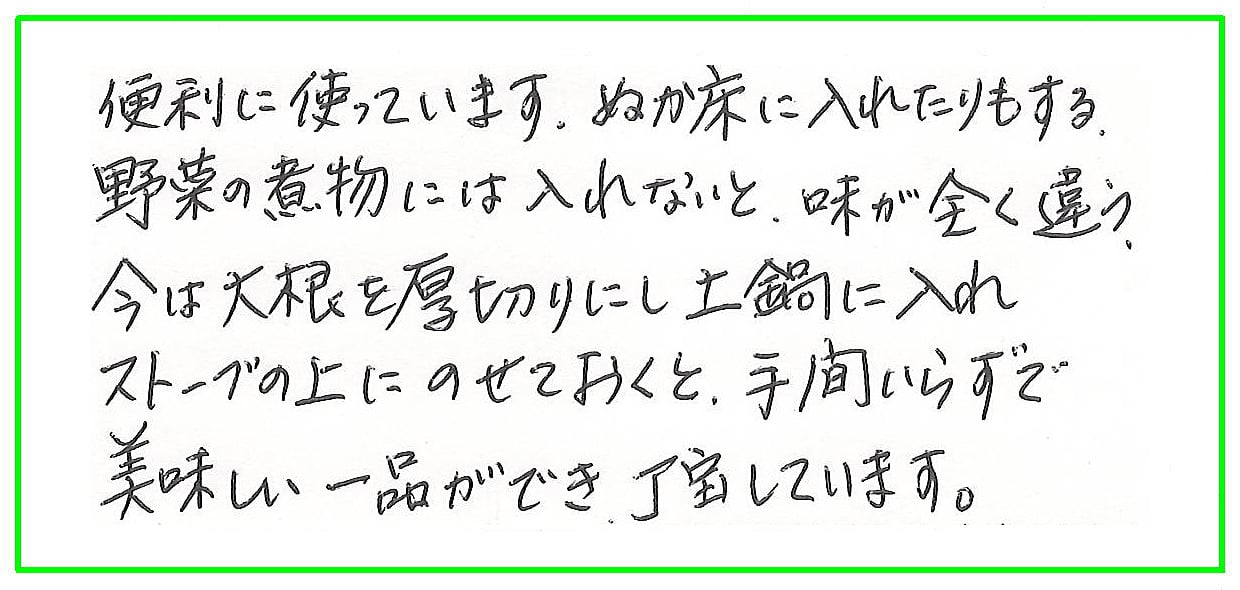 便利に使っています。ぬか床に入れたりもする。
野菜の煮物には入れないと、味が全く違う。
今は大根を厚切りにし土鍋に入れ
ストーブの上にのせておくと、手間いらずで
美味しい一品ができ、丁宝しています。